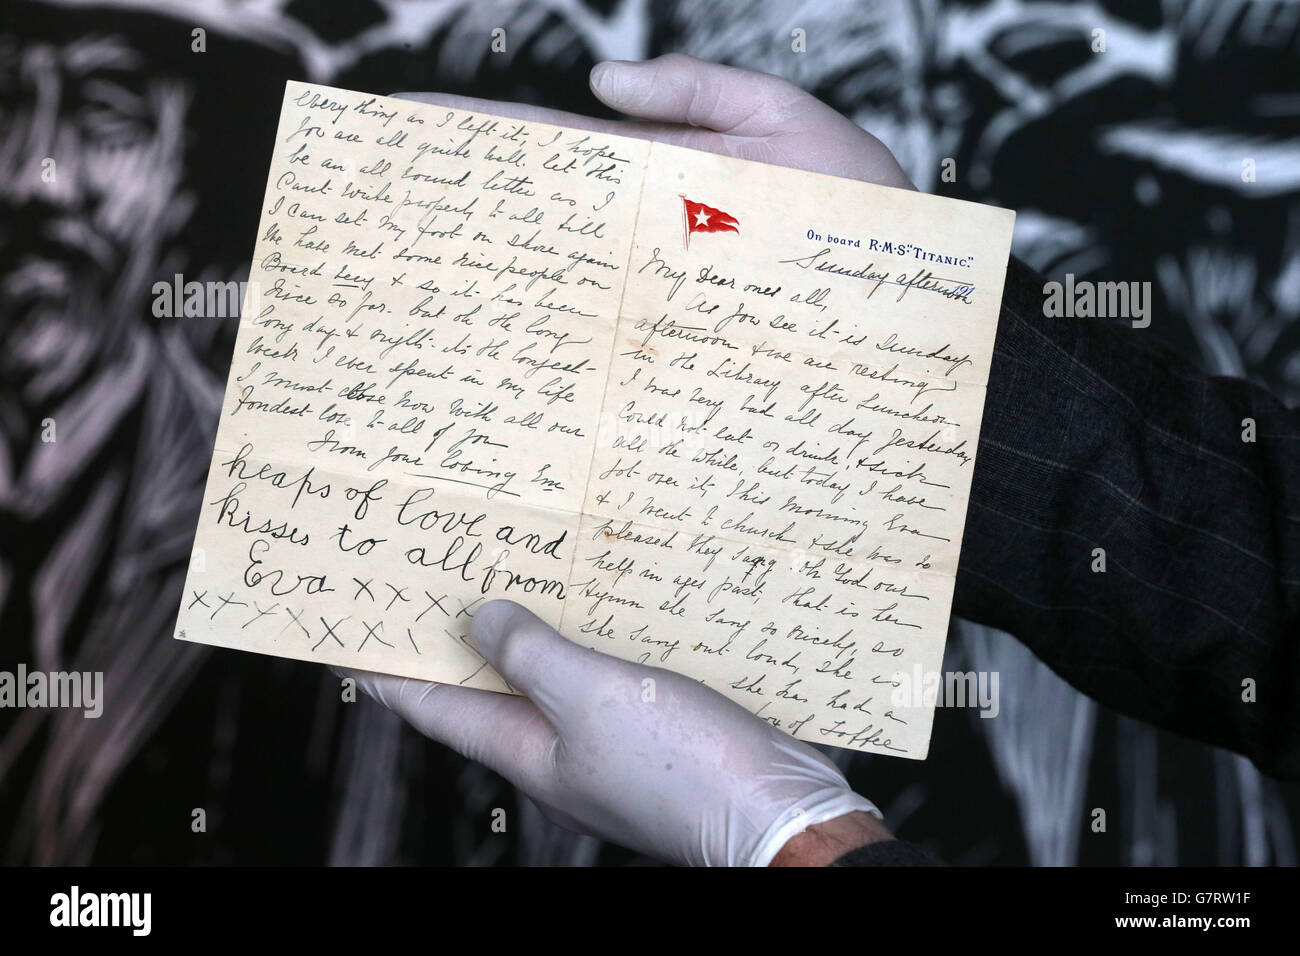 every thing as I left it, I hope
you are all quite well. let this
be an all round letter as I
Cant write properly to all till
I can set my foot on shore again
We have met some nice people on
Board Lucy & so it has been
nice so far. but oh the long
long day & nights. its the longest
Week I ever spent in my life
I must close now With all our
fondest love to all of you
From your loving Em
heaps of love and
kisses to all from
Eva x x x x
x x x x x x x \
On board R.M.S. "TITANIC."
Sunday afternoon 191
My Dear ones all,
As you see it is Sunday
afternoon & we are resting
in the Library after Luncheon
I was very bad all day Yesterday
Could not eat or drink, & sick
all the while, but today I have
got over it, This Morning Eva
& I went to church & she was so
pleased they sang Oh God our
help in ages past, that is her
Hymn she Sang so nicely, so
she Sang out loud, she is
she has had a
box of Toffee
alamy
Image ID: G7RW1F
www.alamy.com